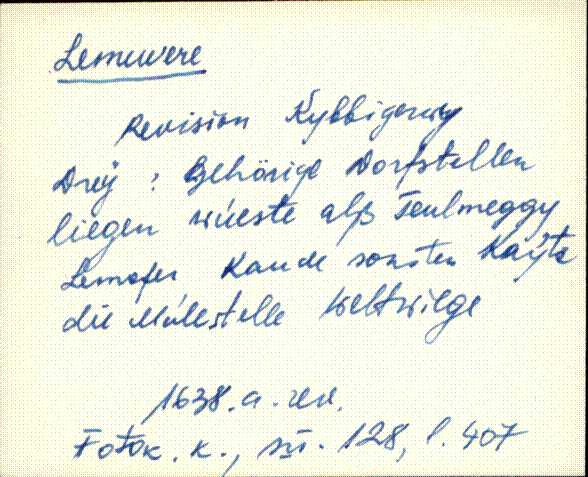 Lemuvere
Revision Kybbigerwy
Dreÿ : Gehörige Dorfstellen
liegen wüeste alß Teulmeggy
Lemofer Kaude sonsten Kaÿta
die Mülestelle Weltwilge
1638. a. rev.
Fotok. k., 128, l. 407